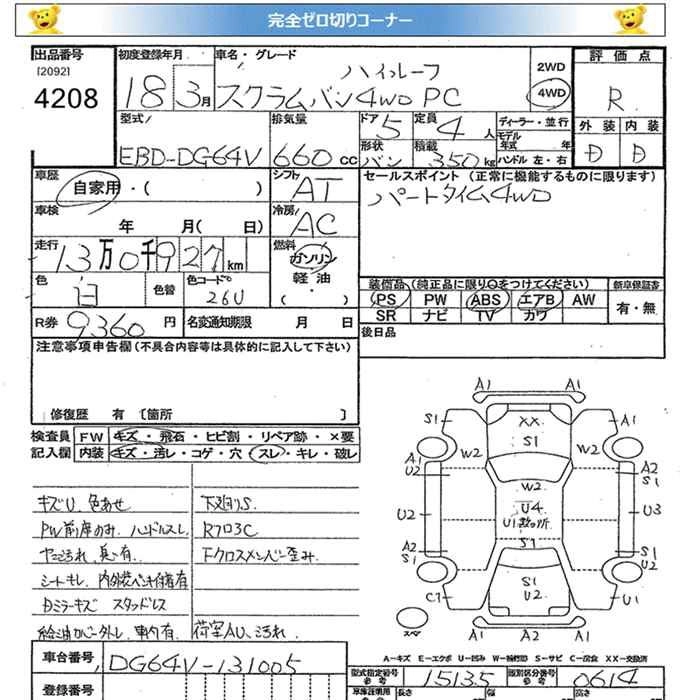 完全ゼロ切りコーナー
出品番号 初度登録年月 車名・グレード ハイルーフ 2WD 評価点
[2092]
4208 18 3月 スクラムバン4WD PC 4WD R
型式 排気量 ドア 5 定員 4人 ディーラー・並行 外装 内装
モデル年式 年式
EBD-DG64V 660cc 形状 バン 積載 350kg ハンドル 左・右 D D
車歴 シフト AT セールスポイント (正常に機能するものに限ります)
自家用・( ) パートタイム4WD
車検 冷房 AC
年 月( 日)
走行 13万0千927km 燃料 ガソリン
軽油
・( )
色 白 色替 色コード 26U 装備品 (純正品に限り○をつけてください) 新車保証書
PS PW ABS エアB AW 有・無
R券 9360円 名変通知期限 月 日 SR ナビ TV カワ
注意事項申告欄 (不具合内容等は具体的に記入して下さい) 後日品
修復歴 有 [箇所 ]
検査員 FW キズ・飛石・ヒビ割・リペア跡・×要
記入欄 内装 キズ・汚レ・コゲ・穴 スレ・キレ・破レ
キズU、色あせ 下廻りS
PW前席のみ、ハンドルスレ Rフロ3C
ヤニ汚れ、臭い有 Fクロスメンバー歪み
シートキレ、内外装ペンキ付着有
Dミラーキズ スタッドレス
給油カバー外レ、車内有 荷室AU、汚れ
A1 A1
S1 XX A1
S1
W2 W2
A1 A2
U2 S1
W2
U2 U4 U3
U1
A2 S1 S1
S1 U2
S1
C1 U2 U1
スペア A1 A2 A1
A-キズ E-エクボ U-凹み W-補修跡 S-サビ C-腐食 XX-交換済
車台番号 DG64V-131005 型式指定番号 15135 類別区分番号 0614
参考 参考
登録番号 長さ 幅 高さ